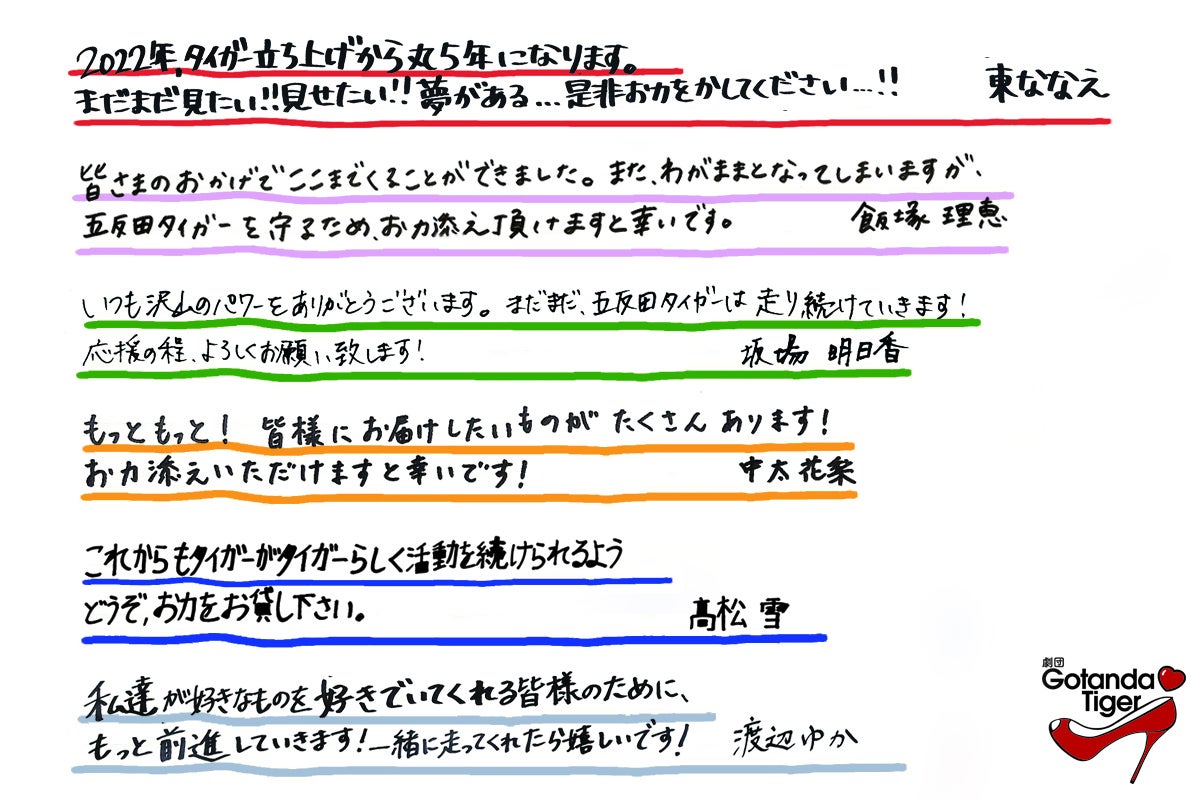 2022年、タイガー立ち上げから丸5年になります。
まだまだ見たい!!見せたい!!夢がある…是非お力をかしてください…!! 東ななえ
皆さまのおかげでここまでくることができました。また、わがままとなってしまいますが、
五反田タイガーを守るため、お力添え頂けますと幸いです。 飯塚 理恵
いつも沢山のパワーをありがとうございます。まだまだ、五反田タイガーは走り続けていきます!
応援の程、よろしくお願い致します! 坂場 明日香
もっともっと! 皆様にお届けしたいものが たくさん あります!
お力添えいただけますと幸いです! 中太 花梨
これからもタイガーがタイガーらしく活動を続けられるよう
どうぞ、お力をお貸し下さい。 高松 雪
私達が好きなものを好きでいてくれる皆様のために、
もっと前進していきます!一緒に走ってくれたら嬉しいです! 渡辺ゆか
劇団
Gotanda
Tiger